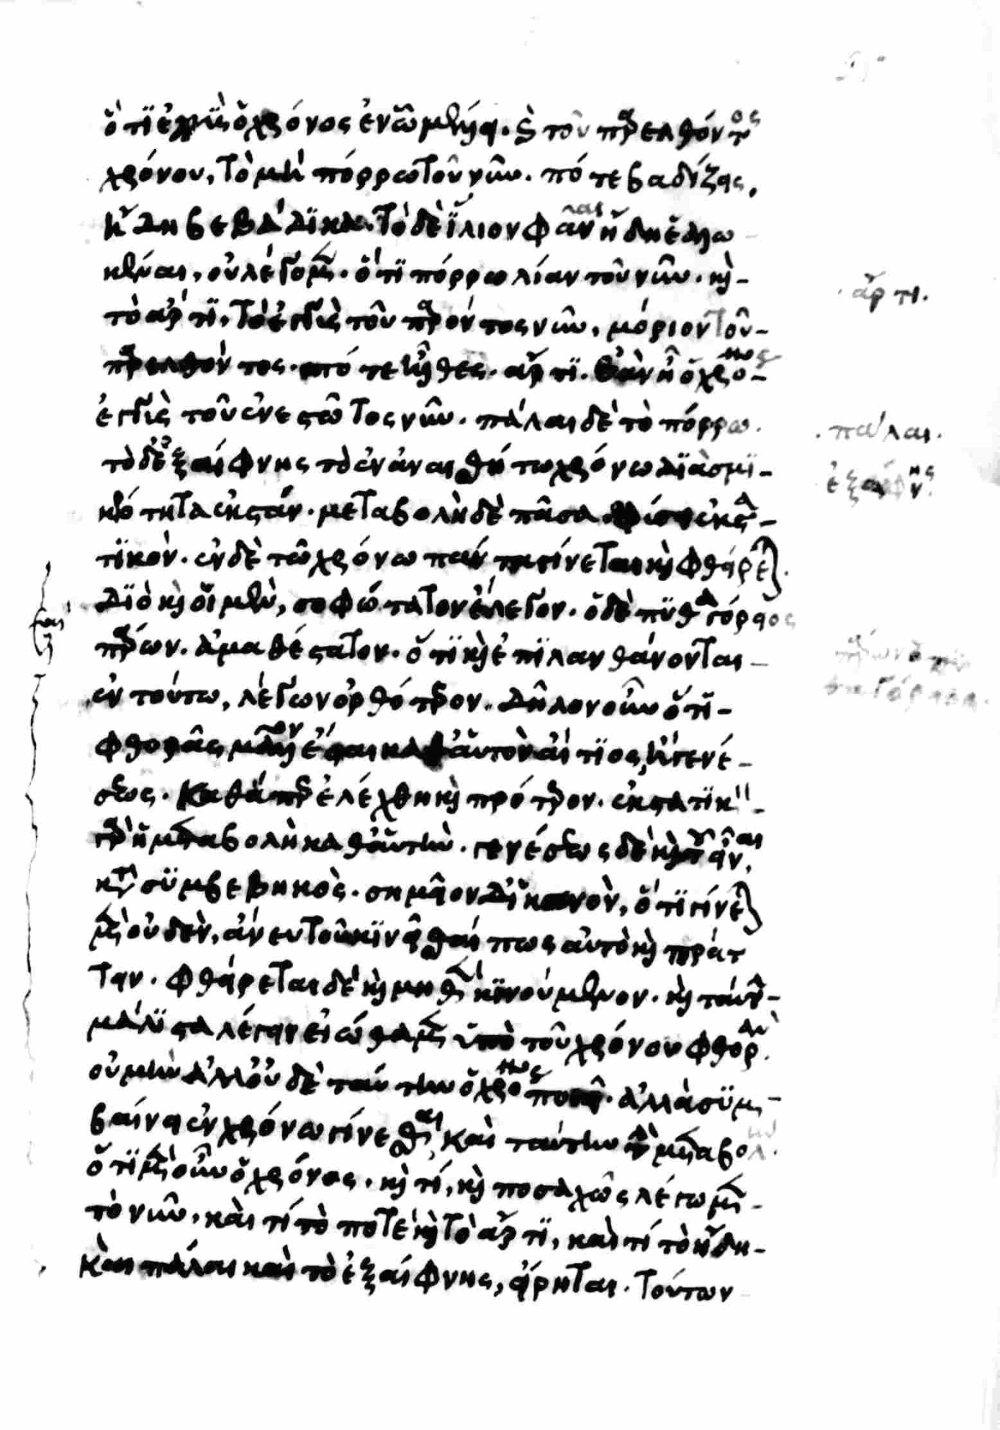 ὅτι ἐγγὺς ὁ χρόνος ἐν ᾧ μέλλει. καὶ τοῦ παρελθόντος
χρόνου, τὸ μὴ πόρρω τοῦ νῦν. πότε βαδίζεις,
ἤδη βεβάδικα. τὸ δὲ ἴλιον φάναι ἤδη ἑαλω
κέναι, οὐ λέγομεν. ὅτι πόρρω λίαν τοῦ νῦν. καὶ
τὸ ἄρτι, τὸ ἐγγὺς τοῦ παρόντος νῦν, μόριον τοῦ
ἄρτι.
παρελθόντος. πότε ἦλθες. ἄρτι. ἐὰν ἦ ὁ χρόνος
ἐγγὺς τοῦ ἐνεστῶτος νῦν. πάλαι δὲ τὸ πόρρω.
πάλαι.
τὸ δ' ἐξαίφνης τὸ ἐν ἀναισθήτω χρόνω διὰ σμι
ἐξαίφνης
κρότητα ἐκστάν. μεταβολὴ δὲ πᾶσα φύσει ἐκστα
τικόν. ἐν δὲ τῶ χρόνω πάντα γίνεται καὶ φθείρεται.
διὸ καὶ οἱ μὲν, σοφώτατον ἔλεγον. ὁ δὲ πυθαγόρειος
πάρων. ἀμαθέστατον. ὅτι καὶ ἐπιλανθάνονται
πάρων ὁ πυ
θαγόρειος.
ἐν τούτω, λέγων ὀρθότερον. δῆλον οὖν ὅτι
φθορᾶς μᾶλλον ἔσται καθ' αὑτὸν αἴτιος, ἢ γενέ
σεως. καθάπερ ἐλέχθη καὶ πρότερον. ἐκστατικὴ
γὰρ ἡ μεταβολὴ καθ' αὑτήν. γενέσεως δὲ καὶ τοῦ εἶναι,
κατὰ συμβεβηκός. σημεῖον δὲ ἱκανὸν, ὅτι γίνεται
μὲν οὐδὲν, ἄνευ τοῦ κινεῖσθαί πως αὐτὸ καὶ πράτ
τειν. φθείρεται δὲ καὶ μηθὲν κινούμενον. καὶ ταύτην
μάλιστα λέγειν εἰώθαμεν ὑπὸ τοῦ χρόνου φθοράν.
οὐ μὴν ἀλλ' οὐδὲ ταύτην ὁ χρόνος ποιεῖ. ἀλλὰ συμ
βαίνει ἐν χρόνω γίνεσθαι καὶ ταύτην τὴν μεταβολήν.
ὅτι μὲν οὖν ὁ χρόνος. καὶ τί, καὶ ποσαχῶς λέγομεν
τὸ νῦν. καὶ τί τὸ ποτὲ καὶ τὸ ἄρτι, καὶ τί τὸ ἤδη
καὶ πάλαι καὶ τὸ ἐξαίφνης, εἴρηται. τούτων